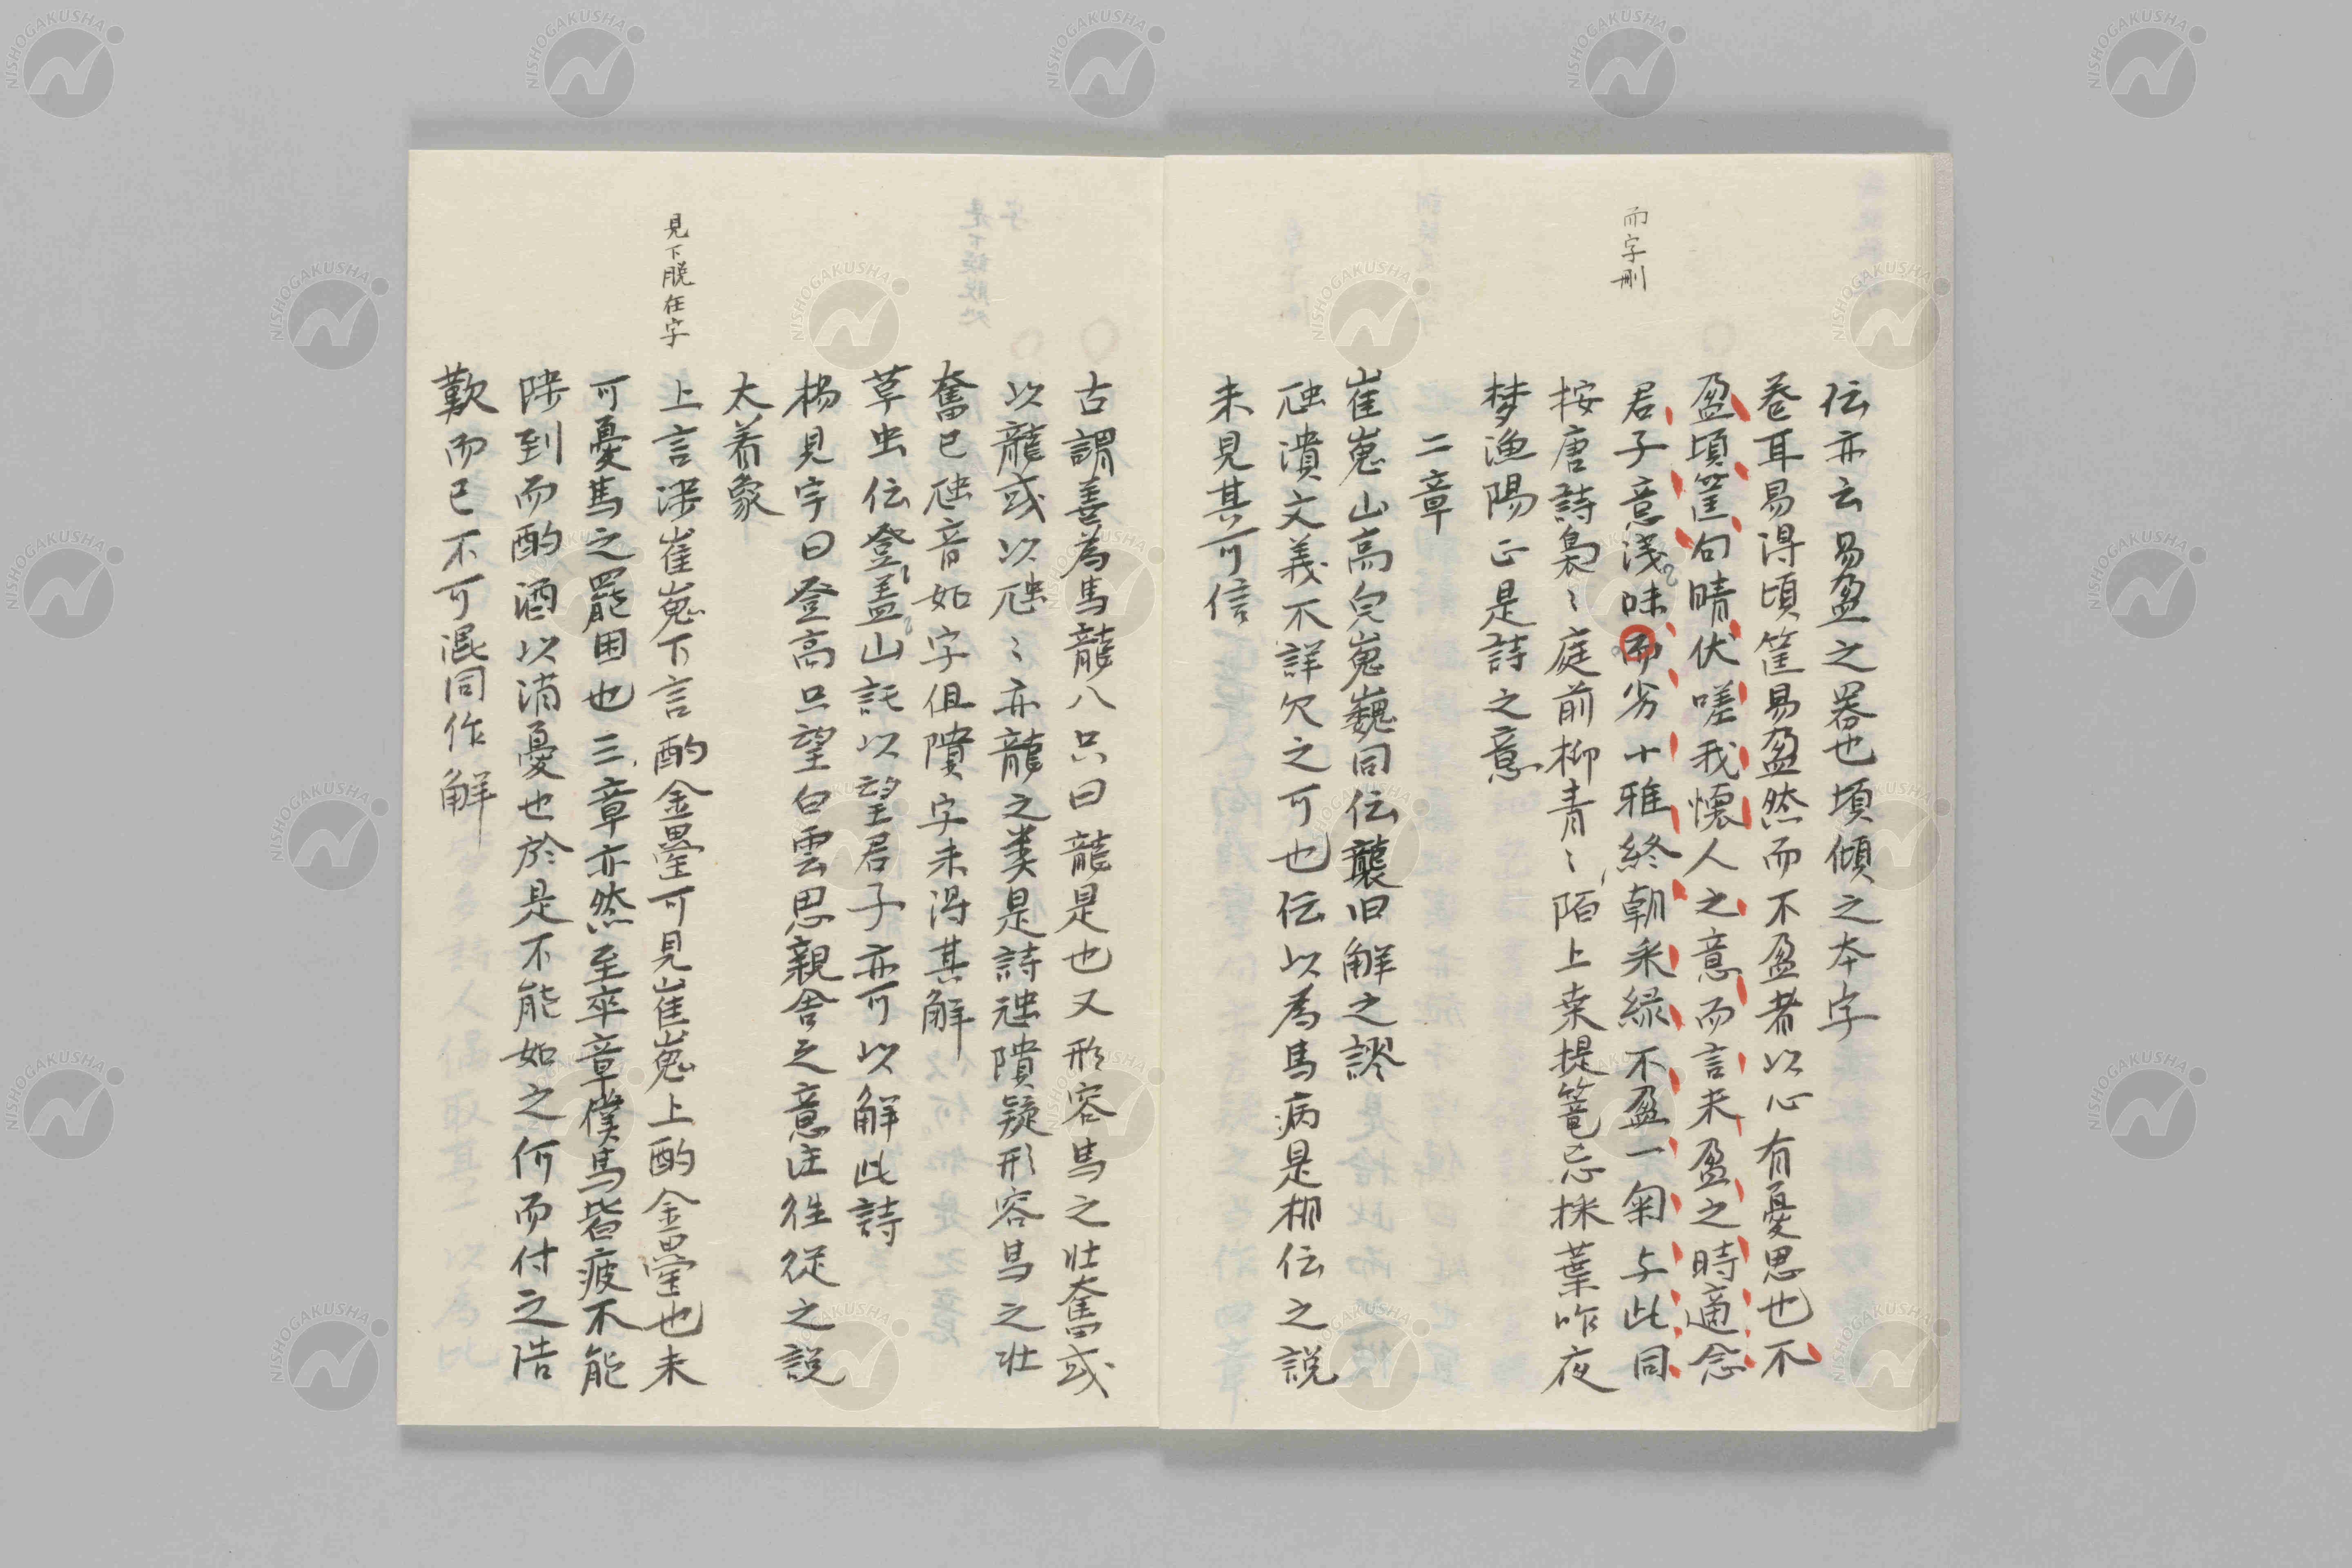 而字刪
伝亦云易盈之器也頃傾之本字
巻耳易得頃筐易盈然而不盈者以心有憂思也不
盈頃筐句晴伏嗟我懐人之意而言未盈之時適念
君子意浅味而劣十雅終朝采緑不盈一匊与此同
按唐詩裊〻庭前柳青〻陌上桒提篭忘採葉昨夜
梦漁陽正是詩之意
二章
崔嵬山高皃嵬巍同伝襲旧解之謬
虺潰文義不詳欠之可也伝以為馬病是栁伝之説
未見其可信
古謂善為馬龍八尺曰龍是也又形容馬之壮奮或
以龍或以虺〻亦龍之类是詩虺隤疑形容馬之壮
奮已虺音如字但隤字未得其解
草虫伝登盖山託以望君子亦可以解此詩
楊見宇曰登高只望白雲思親舎之意注徃従之説
太着象
見下脱在字
上言渉崔嵬下言酌金罍可見崔嵬上酌金罍也未
可憂馬之罷困也三章亦然至卒章僕馬皆疲不能
陟到而酌酒以消憂也於是不能如之何而付之浩
歎而已不可混同作解
NISHOGAKUSHA